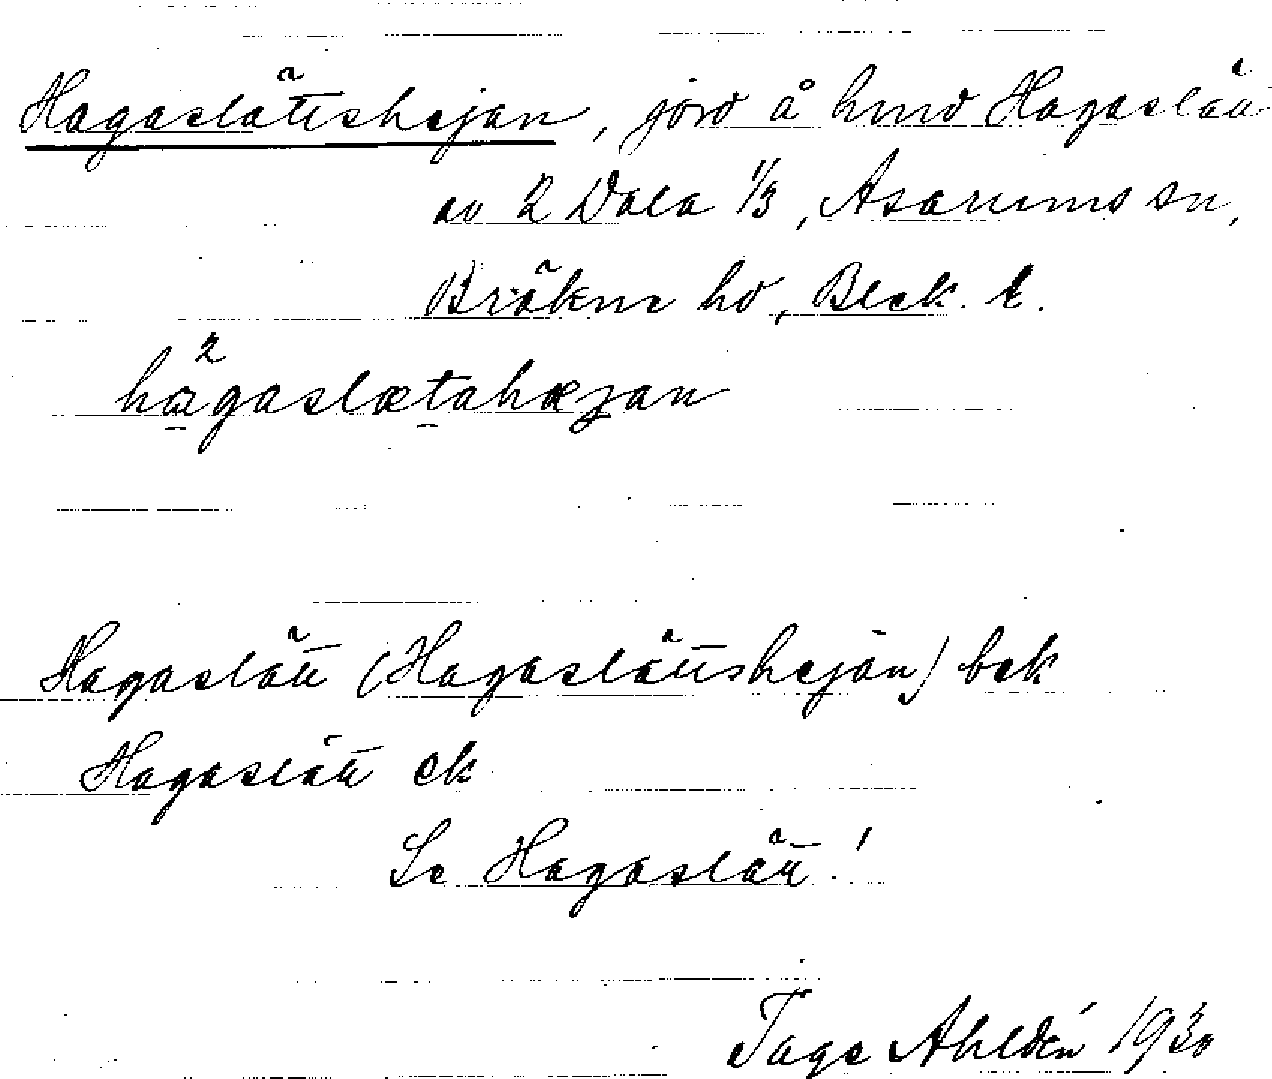 Hagaslättshejan, jord å hmd Hagaslätt
av 2 Dala 1/3, Asarums sn,
Bräkne hd, Blek. l.
hagaslætahæjan
Hagaslätt (Hagaslättshejan) bek
Hagaslätt ek
Se Hagaslätt!
Tage Ahldén 1930